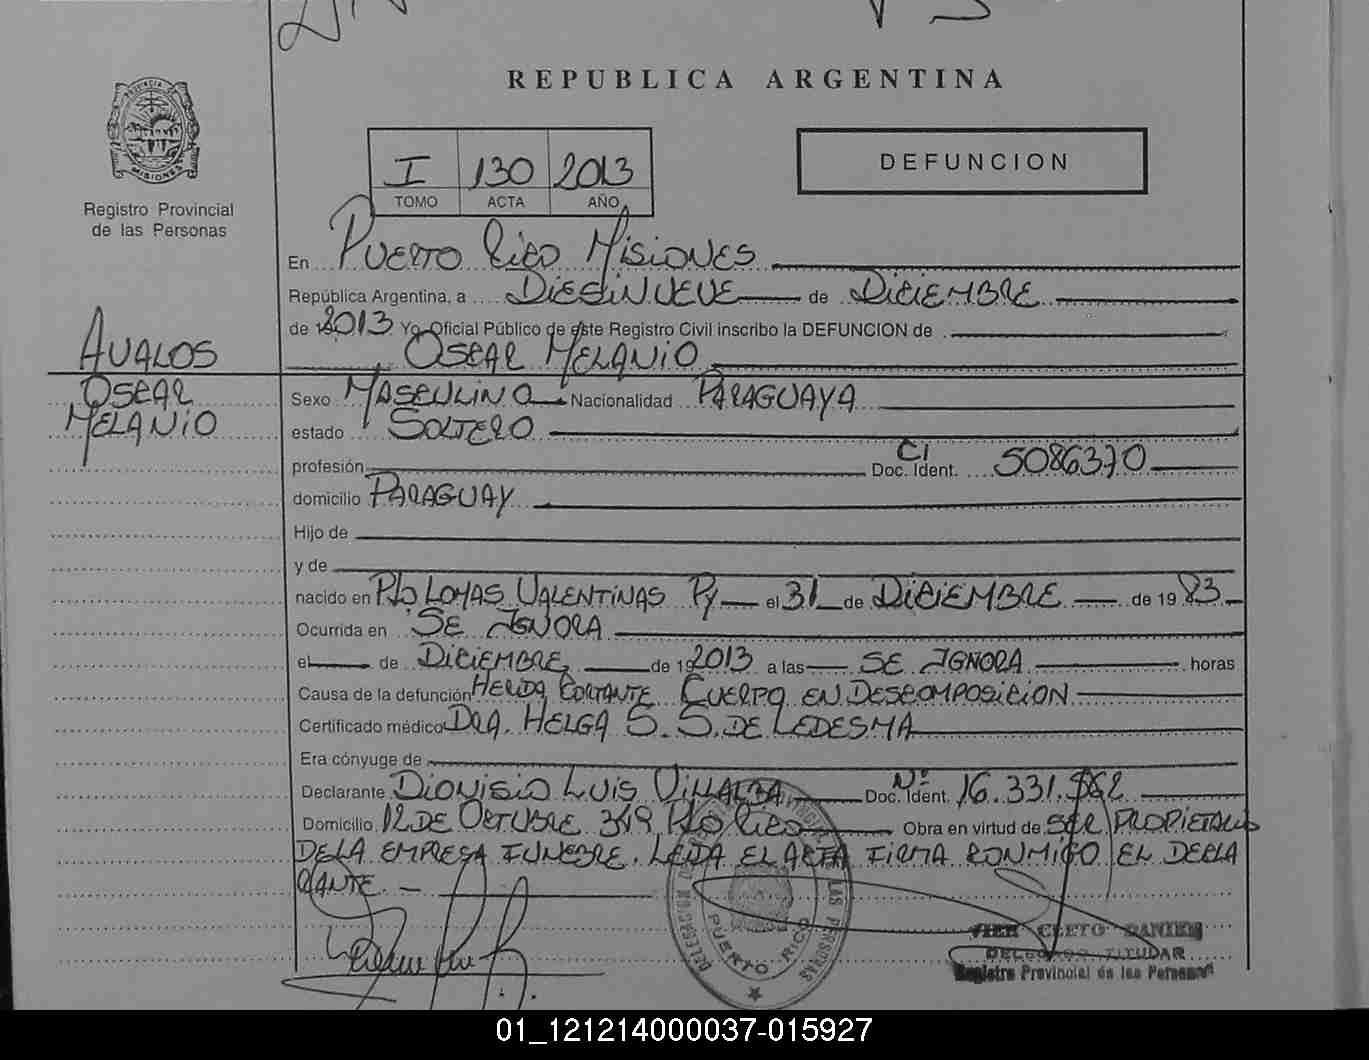 REPUBLICA ARGENTINA
PROVINCIA DE
MISIONES
Registro Provincial
de las Personas
I 130 2013
TOMO ACTA AÑO
DEFUNCION
En PUERTO RICO MISIONES
República Argentina, a DIESINUEVE de DICIEMBRE
de 2013 Yo Oficial Público de este Registro Civil inscribo la DEFUNCION de
AVALOS
OSCAR MELANIO
OSCAR
MELANIO
Sexo MASCULINO Nacionalidad PARAGUAYA
estado SOLTERO
profesión CI Doc. Ident. 5086370
domicilio PARAGUAY
Hijo de
y de
nacido en Pto LOMAS VALENTINAS Py el 31 de DICIEMBRE de 1983
Ocurrida en SE IGNORA
el de DICIEMBRE de 192013 a las SE IGNORA horas
Causa de la defunción HERIDA CORTANTE CUERPO EN DESCOMPOSICION
Certificado médico DRA. HELGA S. S. DE LEDESMA
Era cónyuge de
Declarante DIONISIO LUIS VILLALBA Nº Doc. Ident. 16.331.562
Domicilio 12 DE OCTUBRE 349 Pto RICO Obra en virtud de SER PROPIETARIO
DE LA EMPRESA FUNEBRE. LEIDA EL ACTA FIRMA CONMIGO EL DECLA
RANTE. —
DELEGADO TITULAR
Registro Provincial de las Personas
PUERTO RICO
01_121214000037-015927